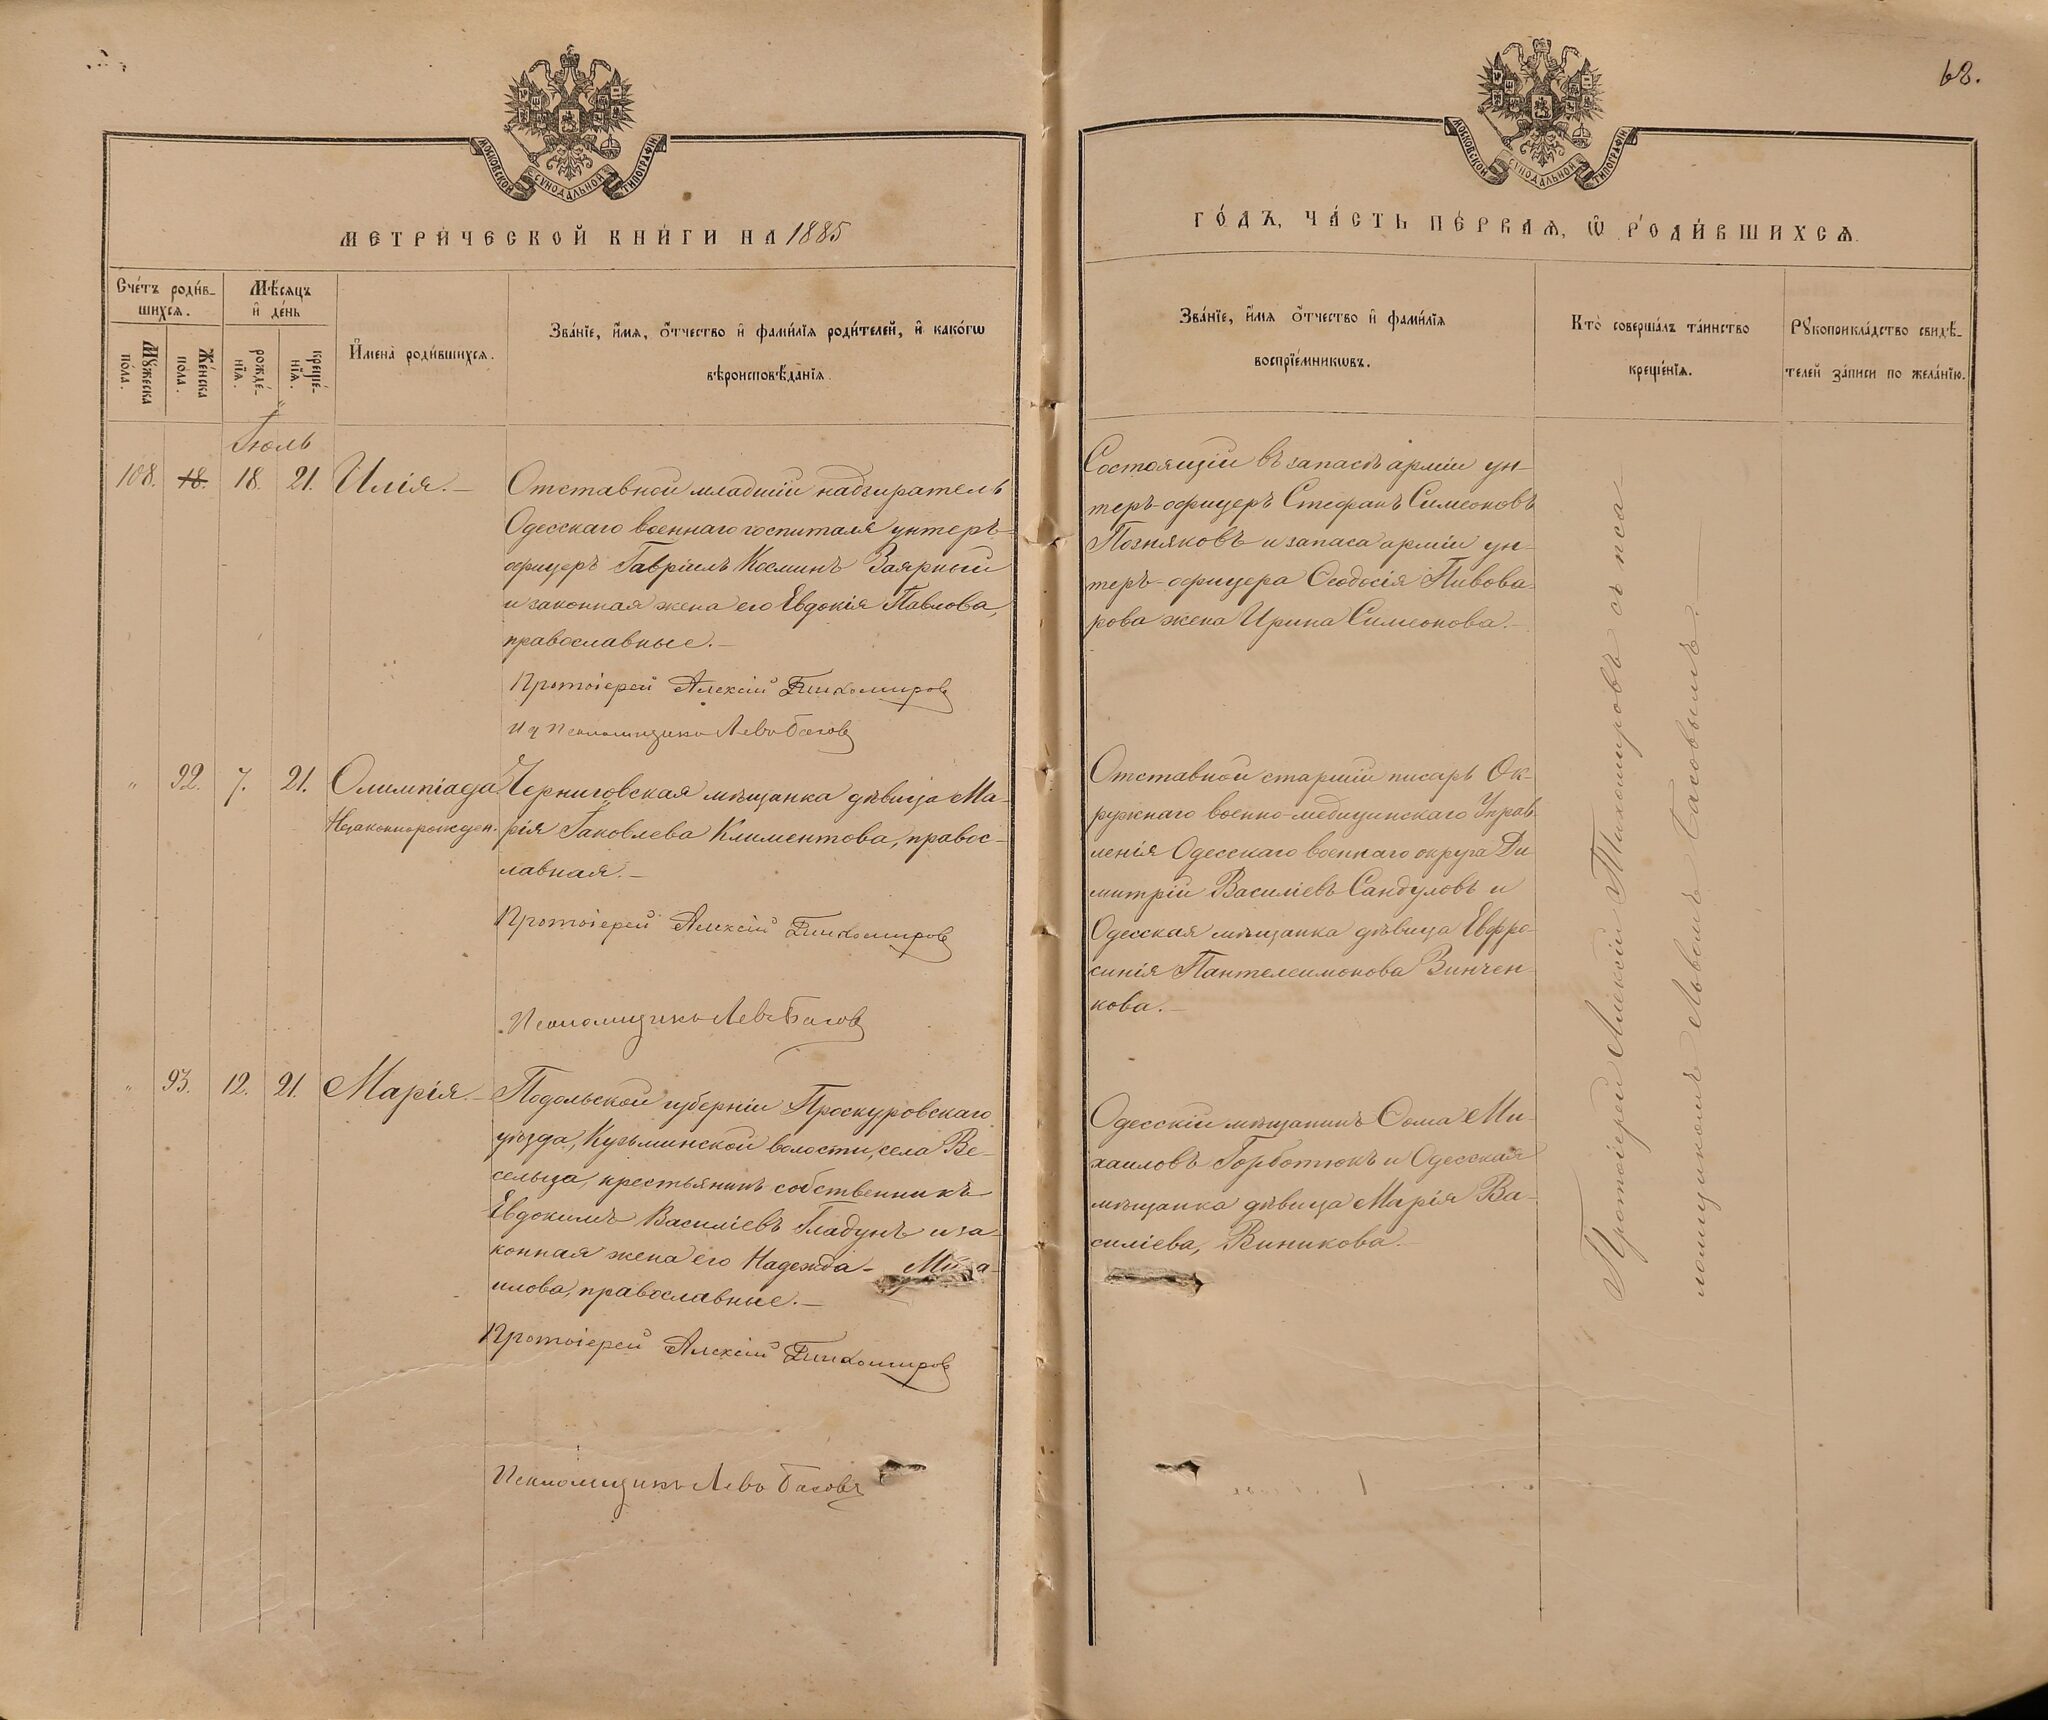 68.
МОСКОВСКОЙ СѴНОДАЛЬНОЙ ТИПОГРАФІИ
МОСКОВСКОЙ СѴНОДАЛЬНОЙ ТИПОГРАФІИ
МЕТРИ́ЧЕСКОЙ КНИ́ГИ НА 1885
ГО́ДЪ, ЧА́СТЬ ПЕ́РВАѦ, Ѡ҆ РОДИ́ВШИХСѦ.
Сче́тъ роди́в-
шихсѧ.
Мѹ́жеска по́ла.
Же́нска по́ла.
Мѣ́сѧцъ
и҆ де́нь
рожде́-
нїѧ.
креще́-
нїѧ.
И҆мена̀ роди́вшихсѧ.
Зва́нїе, и҆́мѧ, ѻ҆́тчество и҆ фами́лїѧ роди́телей, и҆ како́гѡ
вѣроисповѣ́данїѧ.
Зва́нїе, и҆́мѧ ѻ҆́тчество и҆ фами́лїѧ
воспрїе́мникѡвъ.
Кто̀ соверша́лъ та́инство
креще́нїѧ.
Рꙋкоприкла́дство свидѣ́-
телей за́писи по жела́нїю.
Іюль
108. 18. 18. 21. Илія. —
Отставной младшій надзиратель
Одесскаго военнаго госпиталя унтеръ-
офицеръ Гавріилъ Косминъ Заярный
и законная жена его Евдокія Павлова,
православные. —
Протоіерей Алексій Тихомировъ
Псаломщикъ Левъ Басовъ
Состоящій въ запасѣ арміи ун-
теръ-офицеръ Стефанъ Симеоновъ
Позняковъ и запаса арміи ун-
теръ-офицера Ѳеодосія Пивова-
рова жена Ирина Симеонова. —
" 92. 7. 21. Олимпіада
Незаконнорожден.
Черниговская мѣщанка дѣвица Ма-
рія Іаковлева Климентова, правос-
лавная. —
Протоіерей Алексій Тихомировъ
Псаломщикъ Левъ Басовъ
Отставной старшій писарь Ок-
ружнаго военно-медицинскаго Управ-
ленія Одесскаго военнаго округа Ди-
митрій Василіевъ Сандуловъ и
Одесская мѣщанка дѣвица Евфро-
синія Пантелеимонова Винчен-
кова. —
" 93. 12. 21. Марія. —
Подольской губерніи Проскуровскаго
уѣзда, Кузьминской волости, села Ве-
сельца, крестьянинъ собственникъ
Евдокимъ Василіевъ Гладунъ и за-
конная жена его Надежда — Миха-
илова, православные. —
Протоіерей Алексій Тихомировъ
Псаломщикъ Левъ Басовъ
Одесскій мѣщанинъ Ѳома Ми-
хаиловъ Горботюкъ и Одесская
мѣщанка дѣвица Марія Ва-
силіева, Виникова. —
Протоіерей Алексій Тихомировъ съ пса-
ломщикомъ Львомъ Басовымъ. —